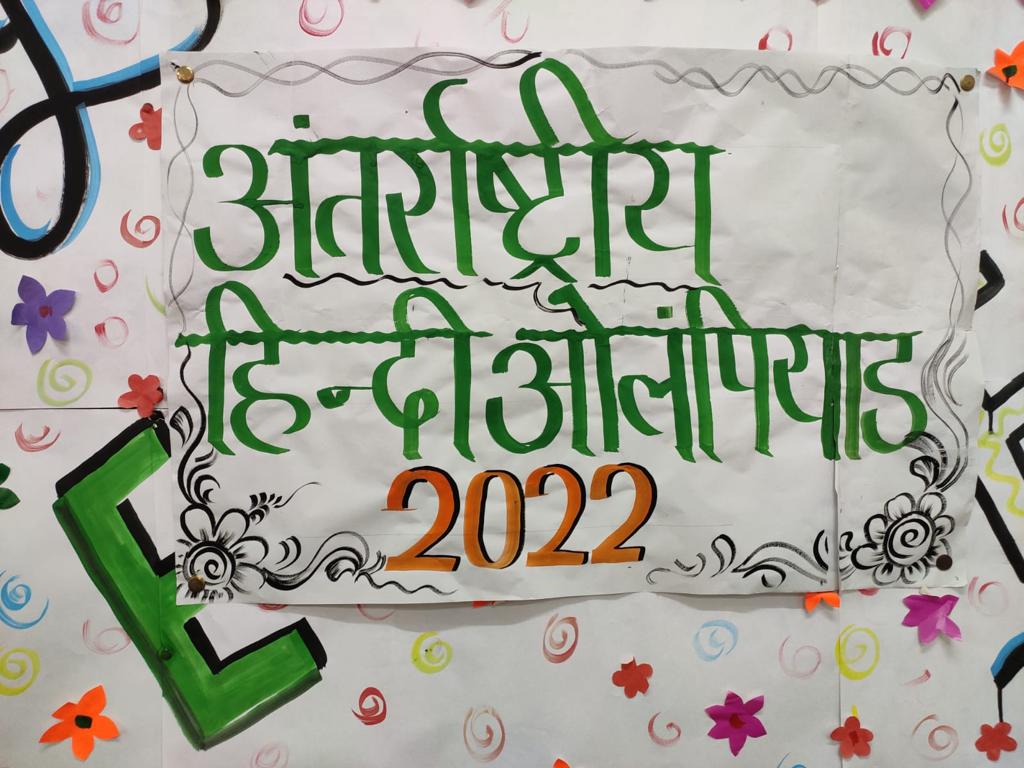 अंतर्राष्ट्रीय
हिन्दी ओलंपियाड
2022